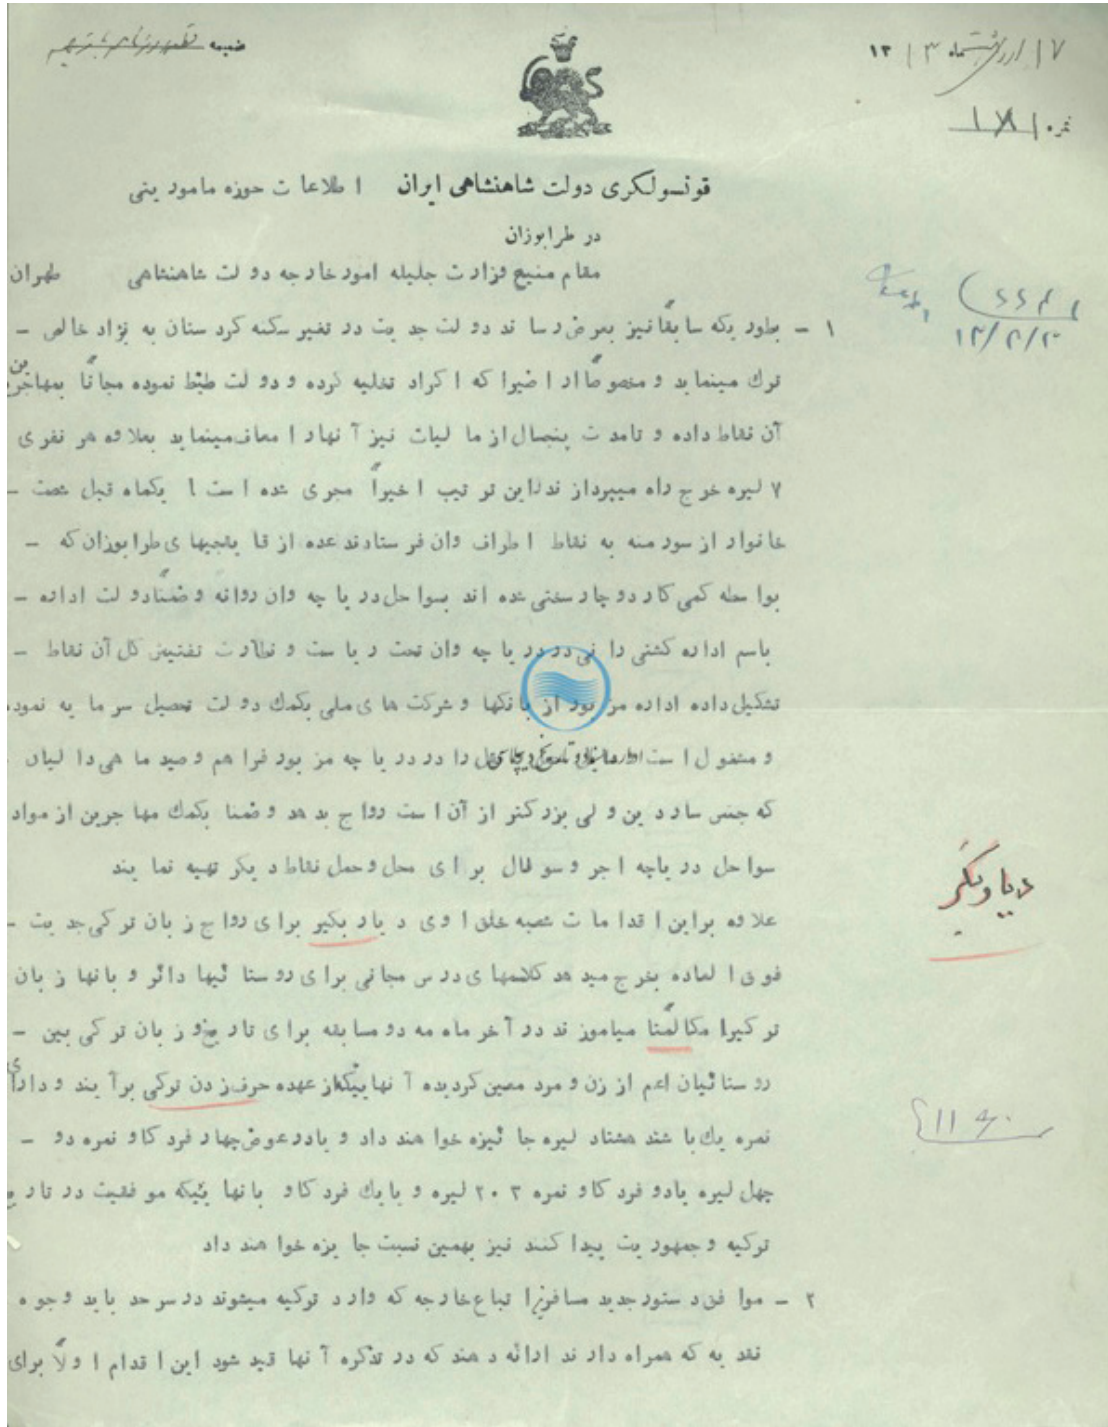 ۱۷ اردیبهشت ماه ۱۳۱۳
ضمیمه
نمره ۱۸۱
قونسولگری دولت شاهنشاهی ایران اطلاعات حوزه ماموریتی
در طرابوزان
مقام منیع وزارت جلیله امور خارجه دولت شاهنشاهی طهران
۱ - بطوریکه سابقاً نیز بعرض رساند دولت جدیت در تغیر سکنه کردستان به نژاد خالص -
ترك مینماید و مخصوصاً اراضیرا که اکراد تخلیه کرده و دولت ظبط نموده مجاناً بمهاجرین
آن نقاط داده و تامدت پنجسال از مالیات نیز آنهارا معاف مینماید بعلاوه هر نفری
۷ لیره خرج راه میپردازند این ترتیب اخیراً مجری شده است یکماه قبل شصت -
خانوار از سورمنه به نقاط اطراف وان فرستادند عده از قایقچیهای طرابوزان که -
بواسطه کمی کار دوچار سختی شده اند بسواحل دریاچه وان روانه و ضمناً دولت اداره -
باسم اداره کشتی رانی در دریاچه وان تحت ریاست و نظارت تفتیش کل آن نقاط -
تشکیل داده اداره مزبور از بانکها و شرکت های ملی بکمك دولت تحصیل سرمایه نموده
و مشغول است را در دریاچه مزبور فراهم و صید ماهی دالیان
که جنس ساردین ولی بزرکتر از آن است رواج بدهد و ضمنا بکمك مهاجرین از مواد
سواحل دریاچه اجر و سوفال برای محل و حمل نقاط دیکر تهیه نمایند
علاوه براین اقدامات شعبه خلق اوی دیاربکیر برای رواج زبان ترکی جدیت -
فوق العاده بخرج میدهد کلاسهای درس مجانی برای روستائیها دائر و بانها زبان
ترکیرا مکالمتاً میاموزند در آخر ماه مه دو مسابقه برای تاریخ و زبان ترکی بین -
روستائیان اعم از زن و مرد معین کردیده آنهائیکه از عهده حرف زدن ترکی برآیند و دارای
نمره یك باشند هشتاد لیره جائیزه خواهند داد و یا در عوض چهار فرد کاو نمره دو -
چهل لیره یا دو فرد کاو نمره ۳ ۲۰ لیره و یا یك فرد کاو بانهائیکه موفقیت در تاریخ
ترکیه و جمهوریت پیدا کنند نیز بهمین نسبت جایزه خواهند داد
۲ - موافق دستور جدید مسافرین اتباع خارجه که وارد ترکیه میشوند در سرحد باید وجوه
نقدیه که همراه دارند ارائه دهند که در تذکره آنها قید شود این اقدام اولاً برای
دیاربکر